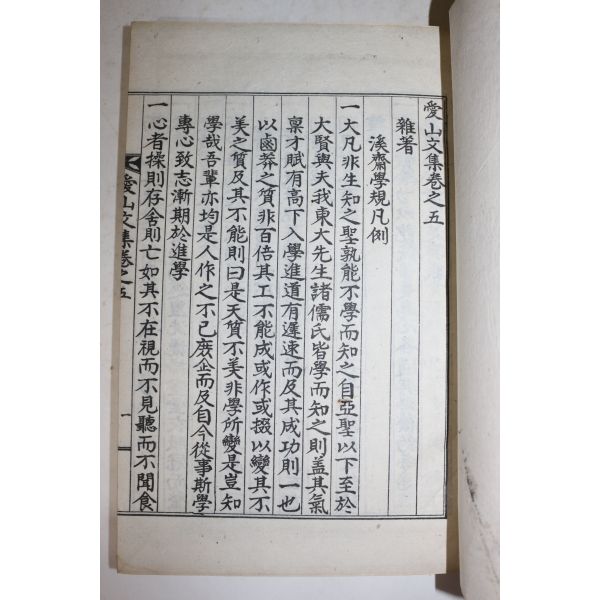 愛山文集卷之五
雜著
溪齋學規凡例
一大凡非生知之聖孰能不學而知之自亞聖以下至於
大賢與夫我東大先生諸儒氏皆學而知之則盖其氣
稟才賦有高下入學進道有遲速而及其成功則一也
以鹵莽之質非百倍其工不能成或作或掇以變其不
美之質及其不能則曰是天質不美非學所變是豈知
學哉吾輩亦均是人作之不已庶企而及自今從事斯學
專心致志漸期於進學
一心者操則存舍則亡如其不在視而不見聽而不聞食
愛山文集卷之五
一